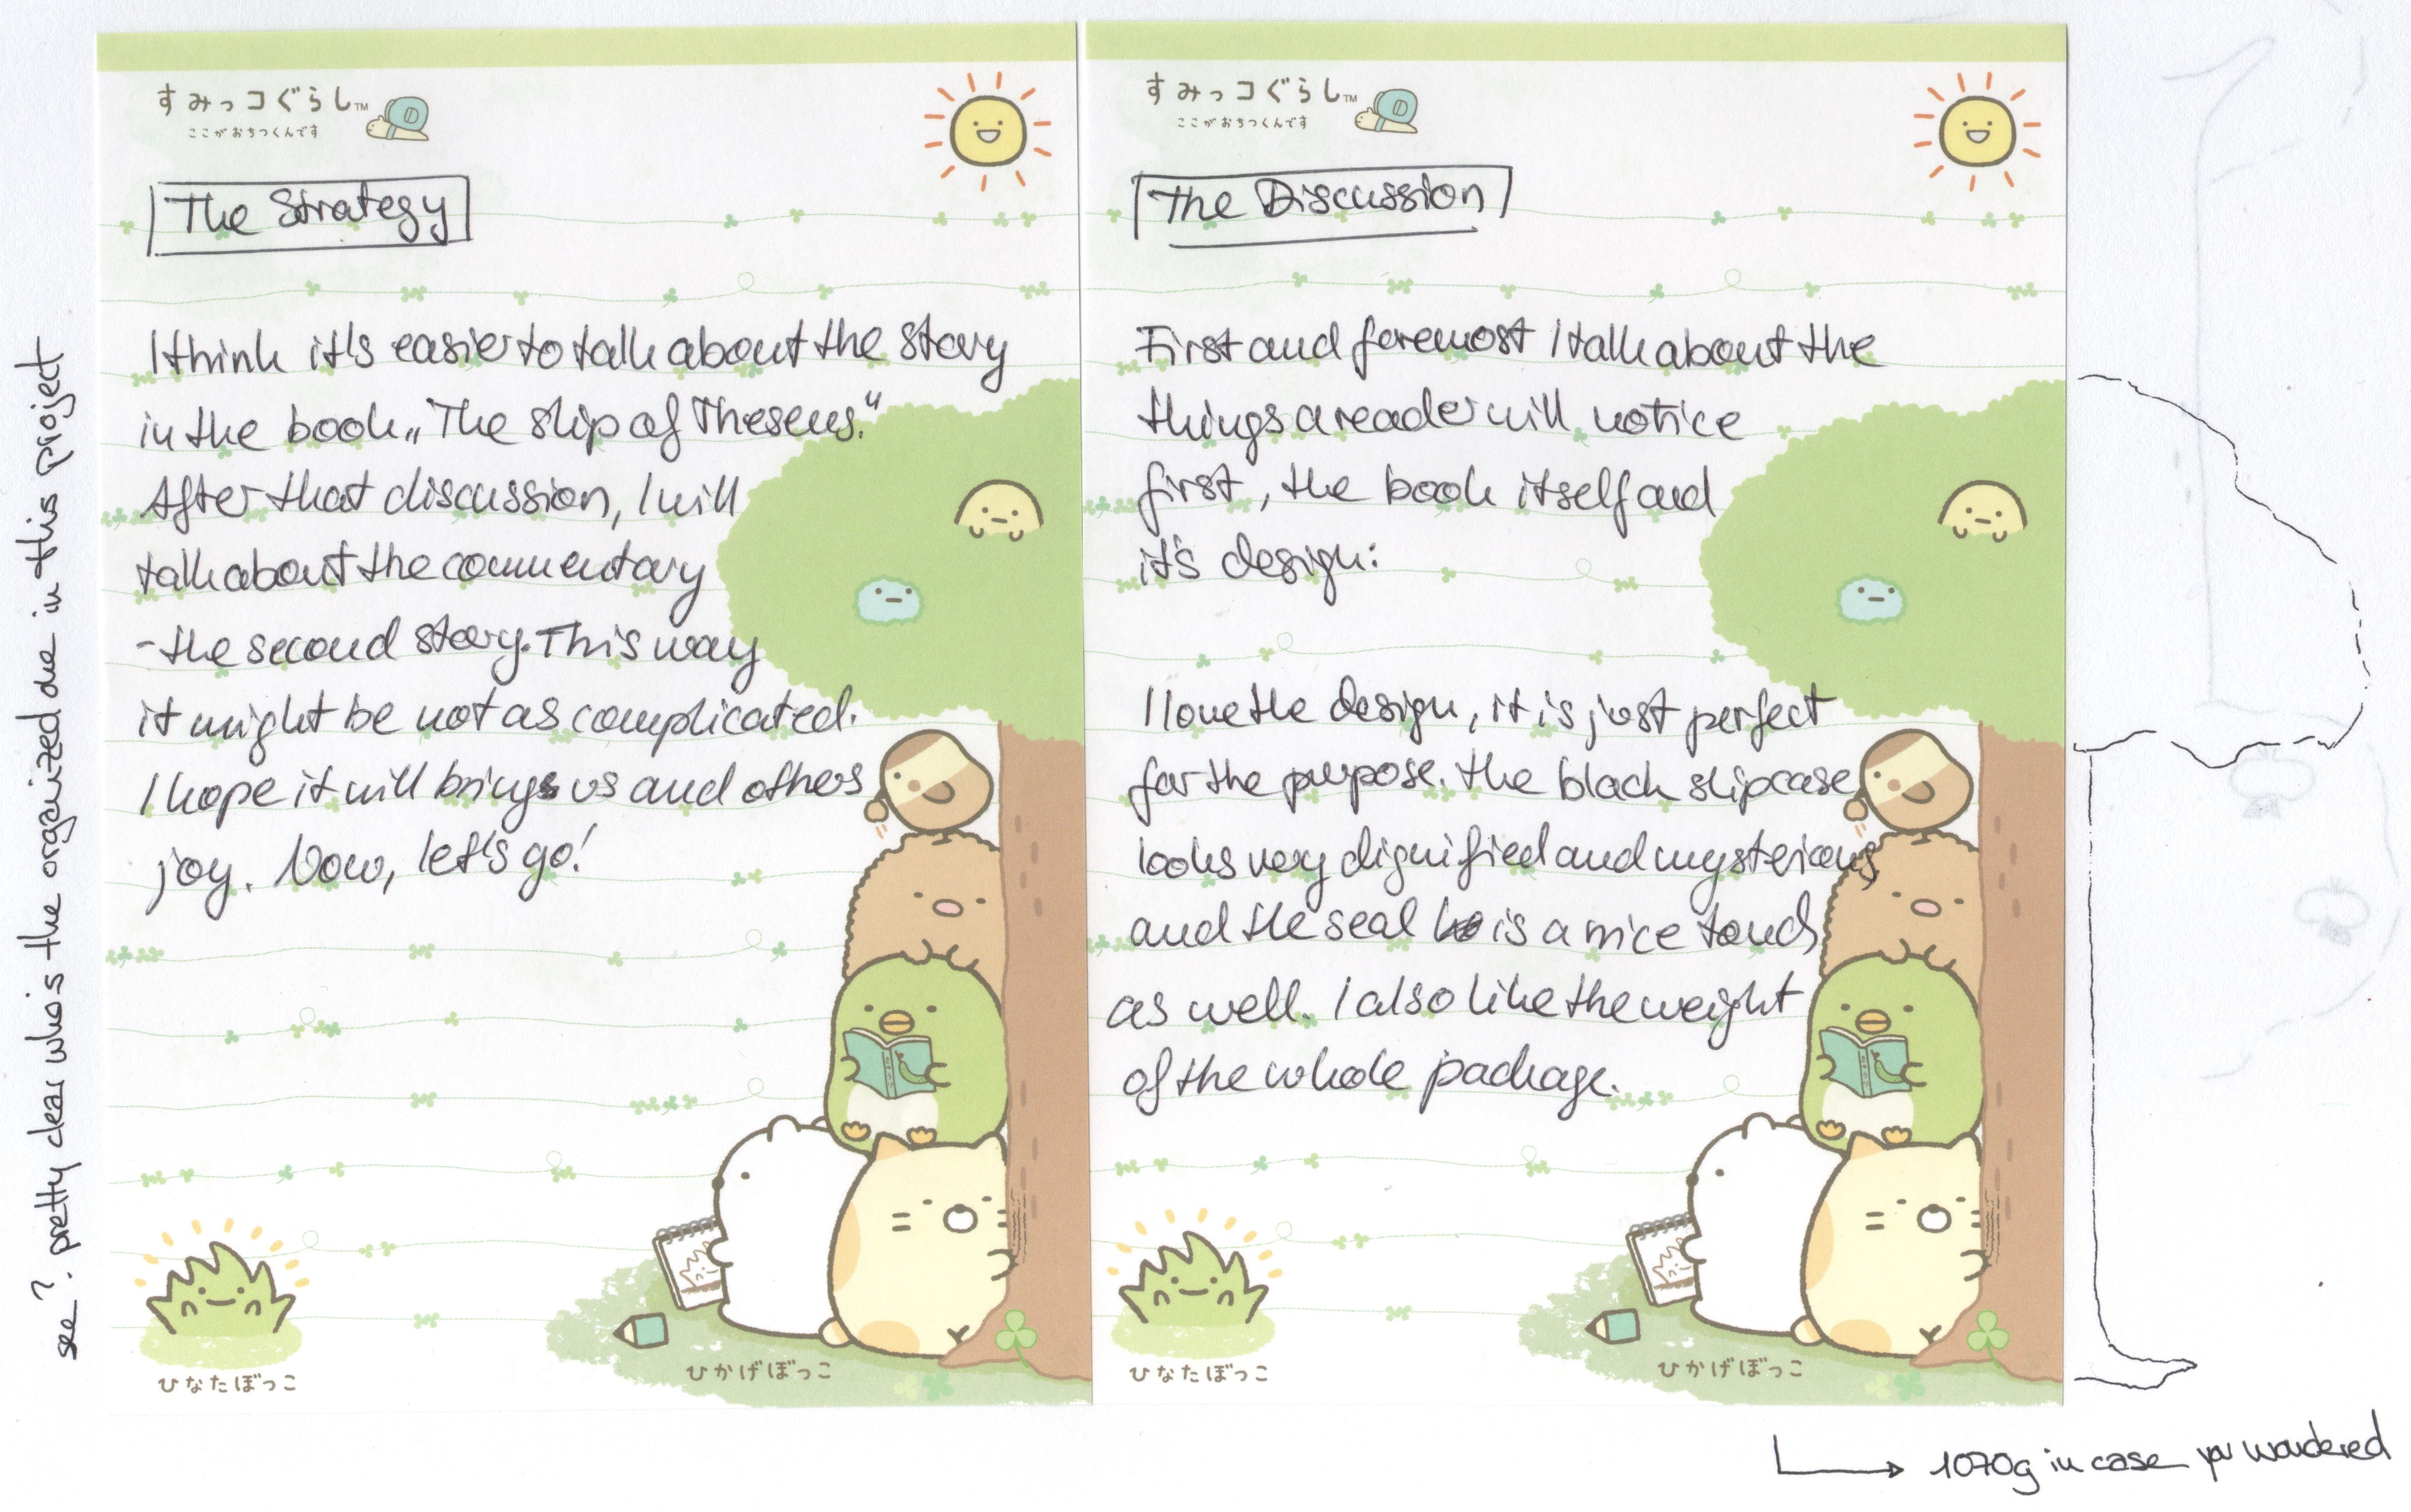 すみっコぐらし™
ここがおちつくんです
The Strategy
I think it's easier to talk about the story
in the book „The ship of Theseus."
After that discussion, I will
talk about the commentary
- the second story. This way
it might be not as complicated.
I hope it will brings us and others
joy. Now, let's go!
ひなたぼっこ
ひかげぼっこ
see? pretty clear who's the organized one in this project
すみっコぐらし™
ここがおちつくんです
The Discussion
First and foremost I talk about the
things a reader will notice
first, the book itself and
it's design:
I love the design, it is just perfect
for the purpose. The black slipcase
looks very dignified and mysterious
and the seal is a nice touch
as well. I also like the weight
of the whole package.
ひなたぼっこ
ひかげぼっこ
1070g in case you wondered